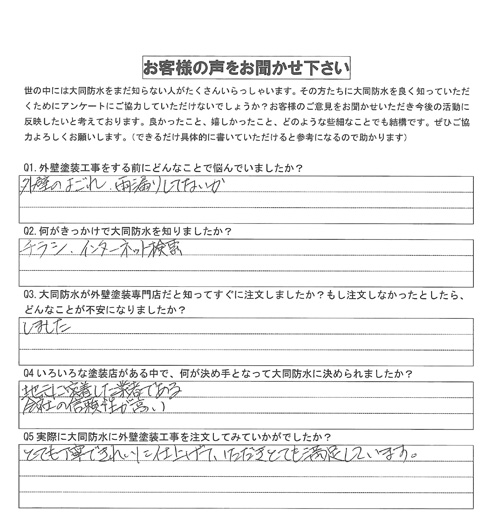 お客様の声をお聞かせ下さい
世の中には大同防水をまだ知らない人がたくさんいらっしゃいます。その方たちに大同防水を良く知っていただ
くためにアンケートにご協力していただけないでしょうか？お客様のご意見をお聞かせいただき今後の活動に
反映したいと考えております。良かったこと、嬉しかったこと、どのような些細なことでも結構です。ぜひご協
力よろしくお願いします。（できるだけ具体的に書いていただけると参考になるので助かります）
Q1. 外壁塗装工事をする前にどんなことで悩んでいましたか？
外壁のよごれ、雨漏りしてないか
Q2. 何がきっかけで大同防水を知りましたか？
チラシ、インターネット検索
Q3. 大同防水が外壁塗装専門店だと知ってすぐに注文しましたか？もし注文しなかったとしたら、
どんなことが不安になりましたか？
しました
Q4 いろいろな塗装店がある中で、何が決め手となって大同防水に決められましたか？
地元に密着した業者である
会社の信頼性が高い
Q5 実際に大同防水に外壁塗装工事を注文してみていかがでしたか？
とても丁寧できれいに仕上げて、いただきとても満足しています。